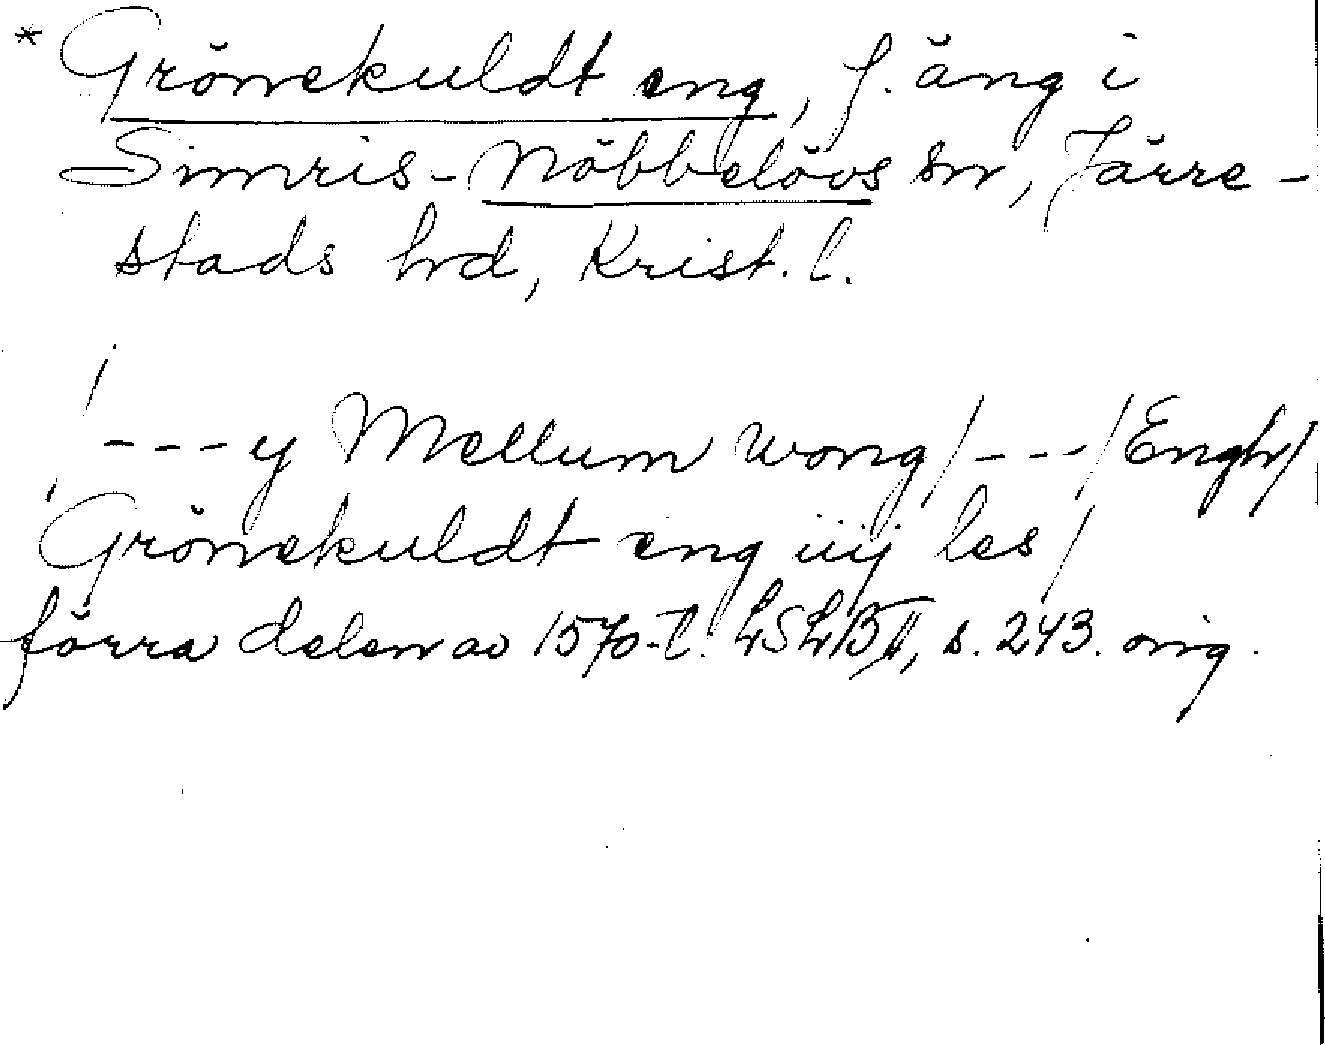 * Grönekuldt eng, f. äng i
Simris-Nöbbelövs sn, Järre-
stads hd, Krist. l.
/
---y Mellum wong/---/Engh/
Grönekuldt eng iiij les/
förra delen av 1570-t. LSLB II, s. 243. orig.